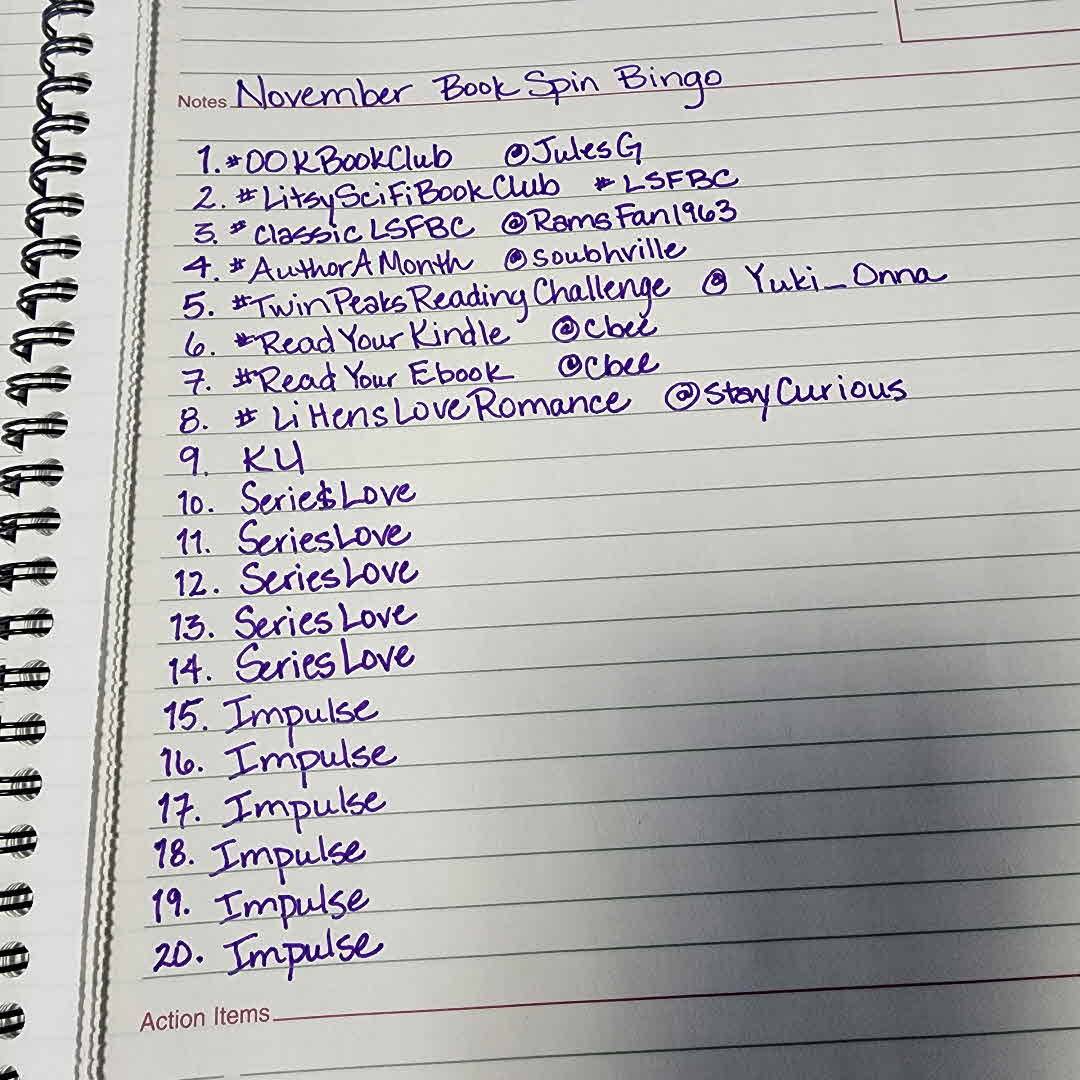 Notes November Book Spin Bingo
1. #OOKBookClub @JulesG
2. #LitsySciFiBookClub #LSFBC
3. #ClassicLSFBC @RamsFan1963
4. #AuthorAMonth @Soubhville
5. #TwinPeaksReadingChallenge @Yuki_Onna
6. #ReadYourKindle @Cbee
7. #ReadYourEbook @Cbee
8. #LiHensLoveRomance @StayCurious
9. KU
10. Serie$Love
11. SeriesLove
12. SeriesLove
13. SeriesLove
14. SeriesLove
15. Impulse
16. Impulse
17. Impulse
18. Impulse
19. Impulse
20. Impulse
Action Items